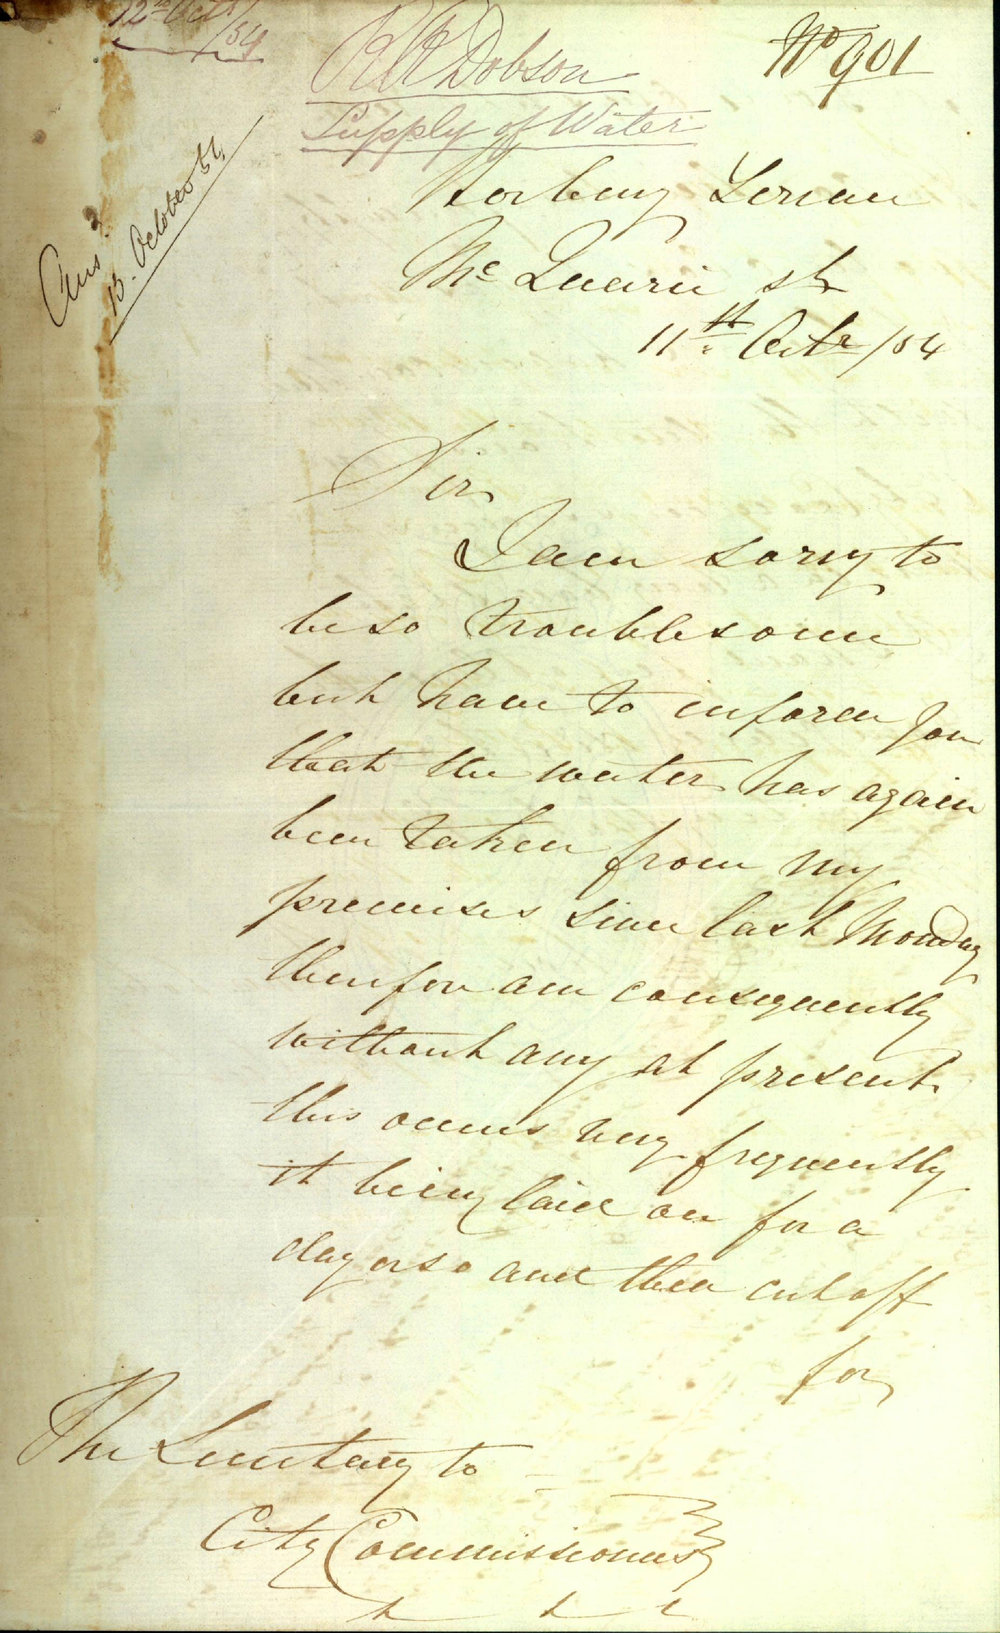 12th Octr /54
No 901
R R Dobson
Supply of Water
Ans.d
13. October 54
Horbury Terrace
McQuarie St
11th Octr /54
Sir
I am sorry to
be so troublesome
but have to inform you
that the water has again
been taken from my
premises since last Monday
therefore am consequently
without any at present.
this occurs very frequently
it being laid on for a
day or so and then cut off
for
The Secretary to
City Commissioners